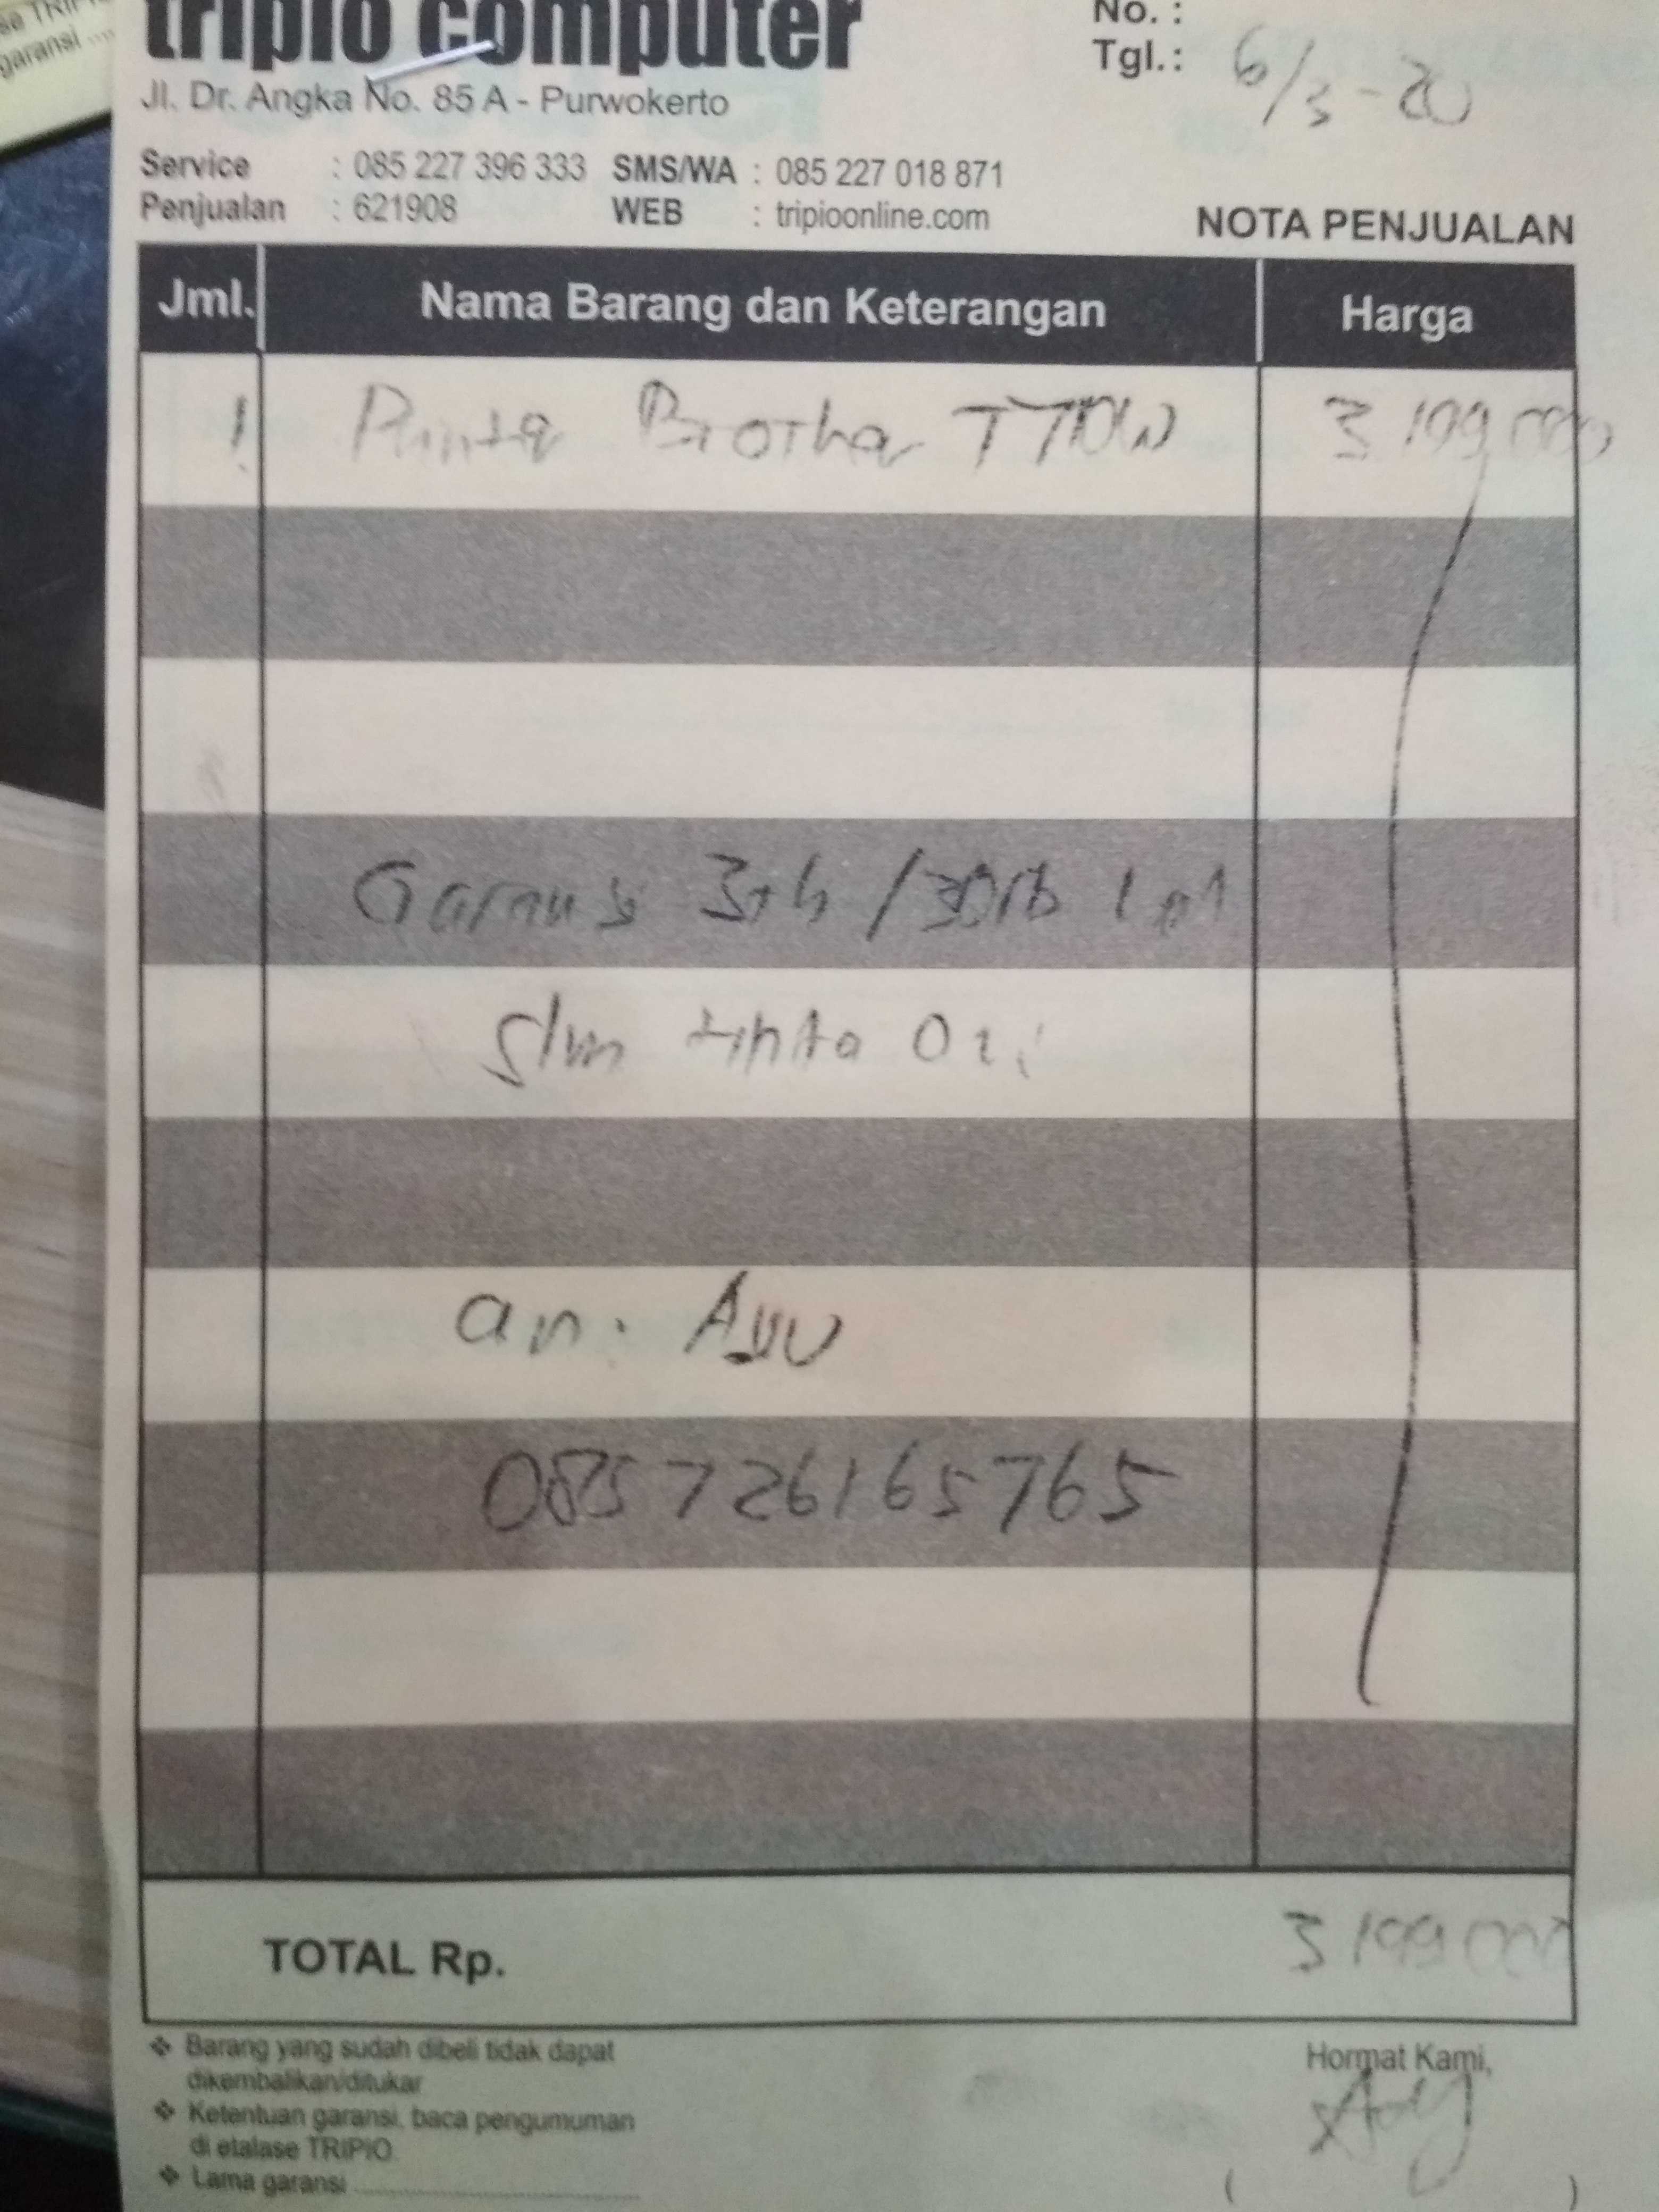 se TRIPIO
garansi ....
tripio computer
No. :
Tgl.: 6/3-20
Jl. Dr. Angka No. 85 A - Purwokerto
Service : 085 227 396 333 SMS/WA : 085 227 018 871
Penjualan : 621908 WEB : tripioonline.com
NOTA PENJUALAN
Jml. Nama Barang dan Keterangan Harga
1 Printer Brother T710W 3 199 000
Garansi 3th / 30rb
Slm tinta Ori
an. Ayu
085726165765
TOTAL Rp. 3 199 000
❖ Barang yang sudah dibeli tidak dapat
dikembalikan/ditukar
❖ Ketentuan garansi, baca pengumuman
di etalase TRIPIO
❖ Lama garansi ..............................
Hormat Kami,
( )